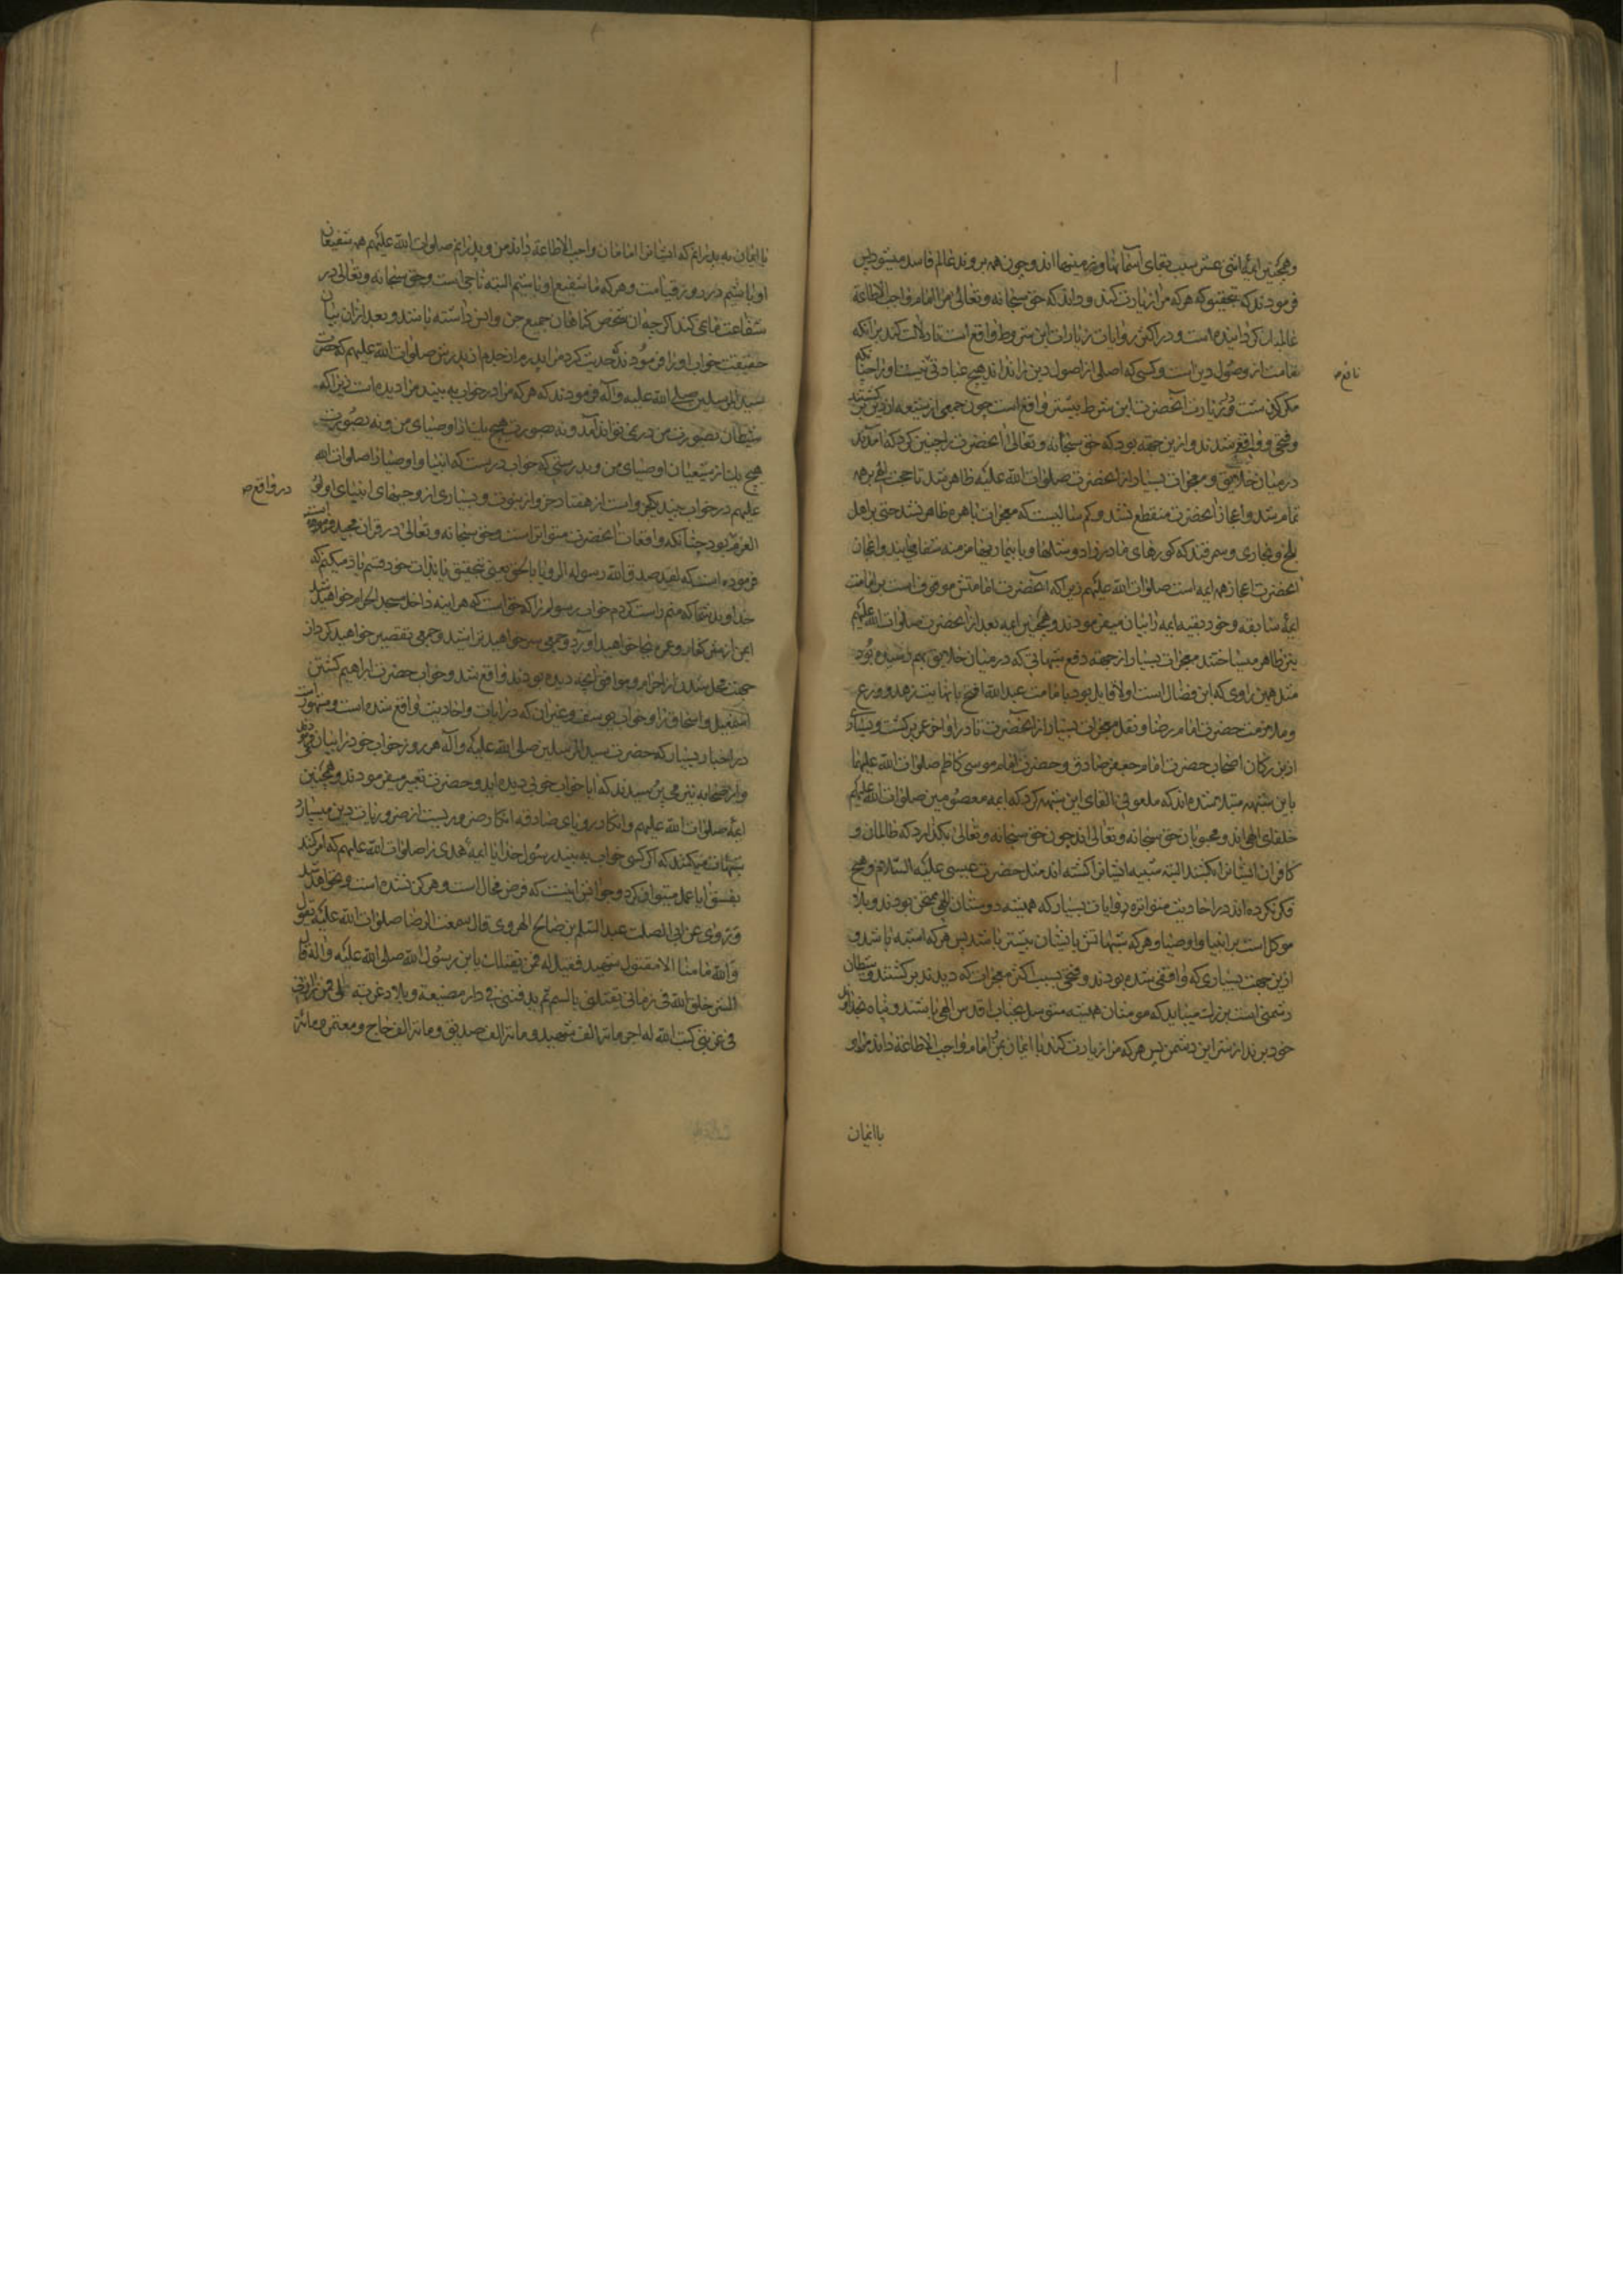 وهمچنین ایمهٔ اثنی عشر سبب بقای آسمانها و زمینها اند و چون همه بروند عالم فاسد میشود پس
فرمودند که بتحقیق که هر که مرا زیارت کند و داند که حق سبحانه و تعالی مرا امام واجب الاطاعة
عالمیان گردانیده است و در اکثر روایات زیارات این شرط واقع است تا دلالت کند بر آنکه
امامت از اصول دین است و کسی که اصلی از اصول دین را نداند هیچ عبادتی نیست او را
و در زیارت آنحضرت این شرط بیشتر واقع است چون جمعی از شیعه از دین برگشتند
و فطحی و واقفی شدند و ازین جهة بود که حق سبحانه و تعالی آنحضرت را چنین کرد که آمدند
در میان خلایق و معجزات بسیار از آنحضرت صلوات الله علیه ظاهر شد تا حجت الهی بر همه
تمام شد و اعجاز آنحضرت منقطع نشد و کم سالیست که معجزات باهره ظاهر نشد حتی بر اهل
بلخ و بخاری و سمرقند که کورهای مادرزاد و شلها و با بیماریهای مزمنه شفا می‌یابند و اعجاز
آنحضرت اعجاز همه ایمه است صلوات الله علیهم زیرا که آنحضرت امامتش موقوف است بر امامت
ایمهٔ سابقه و خود بقیه ایمه را بیان میفرمودند و همچنین ایمه بعد از آنحضرت صلوات الله علیهم
نیز ظاهر میساختند معجزات بسیار از جهة دفع شبهاتی که در میان خلایق بهم رسیده بود
مثل همین راوی که ابن فضال است اولا قایل بود بامامت عبد الله افطح با نهایت زهد و ورع
و ملازمت حضرت امام رضا و نقل معجزات بسیار از آنحضرت تا در اواخر عمر برگشت و بسیاری
از بزرگان اصحاب حضرت امام جعفر صادق و حضرت امام موسی کاظم صلوات الله علیهما
باین شبهه مبتلا شده‌اند که ملعونی القای این شبهه کرد که ایمه معصومین صلوات الله علیهم
خلفای الهی‌اند و محبوبان حق سبحانه و تعالی اند چون حق سبحانه و تعالی بگذارد که ظالمان و
کافران ایشانرا بکشند البته شبیه ایشانرا کشته اند مثل حضرت عیسی علیه السلام و هیچ
فکر نکرده اند در احادیث متواتره و روایات بسیار که همیشه دوستان الهی ممتحن بودند و بلا
موکل است بر انبیا و اوصیا و هر که شباهتش بایشان بیشتر باشد پس هر که اشبه باشد و
ازین جهت بسیاری که واقفی شده بودند و فطحی بسبب اکثر معجزات که دیدند برگشتند و شیطان
دشمنی است بزرگ میباید که مومنان همیشه متوسل بجناب اقدس الهی باشند و پناه بخداوند
خود برند از شر این دشمن پس هر که مرا زیارت کند با ایمان بمن امام واجب الاطاعة داند مرا و
با ایمان
با ایمان به پدرانم که ایشانرا امامان واجب الاطاعة داند من و پدرانم صلوات الله علیهم همه شفیعان
او باشیم در روز قیامت و هر که ما شفیع او باشیم البته ناجی است و حق سبحانه و تعالی در
شفاعت ما می کند اگر چه آن شخص گناهان جمیع جن و انس داشته باشد و بعد از آن بیان
حقیقت خواب او را فرمودند که حدیث کرد مرا پدرم از جدم از پدرش صلوات الله علیهم که حضرت
سید المرسلین صلی الله علیه و آله فرمودند که هر که مرا در خواب به بیند مرا دیده است زیرا که
شیطان بصورت من در نمی تواند آمد و نه بصورت هیچ یک از اوصیای من و نه بصورت
هیچ یک از شیعیان اوصیای من و بدرستی که خواب درست که انبیا و اوصیا را صلوات الله
علیهم در خواب جزویست از هفتاد جزو از نبوت و بسیاری از وحیهای انبیای اولو
در واقع
العزم بود چنانکه واقعات آنحضرت متواتر است و حق سبحانه و تعالی در قران مجید
فرموده است که لقد صدق الله رسوله الرویا بالحق یعنی بتحقیق بذات خود قسم یاد میکنم که
خداوند شما که منم راست کردم خواب رسولم را که حق است که هر اینه داخل مسجد الحرام خواهید شد
ایمن از شر کفار و عمره بجا خواهید آورد و جمعی سر خواهید تراشید و جمعی تقصیر خواهید کرد از
جهت محل شدن از احرام و موافق آنچه دیده بودند واقع شد و خواب حضرت ابراهیم کشتن
اسمعیل و اسحاق را و خواب یوسف و غیر آن که در ایات و احادیث واقع شده است و مشهور است
در اخبار بسیار که حضرت سید المرسلین صلی الله علیه و آله هر روز خواب خود را بیان
و از صحابه نیز می پرسیدند که آیا خواب خوبی دیده اید و حضرت تعبیر میفرمودند و همچنین
ایمه صلوات الله علیهم و انکار رویای صادقه انکار ضروریست از ضروریات دین
شبهات میکنند که اگر کسی خواب به بیند رسول خدا یا ایمهٔ هدی را صلوات الله علیهم که امر کند
بفسق آیا عمل میتوان کرد و جوابش اینست که فرض محال است و هرگز نشده است و نخواهد شد
و روی عن ابی الصلت عبد السلام بن صالح الهروی قال سمعت الرضا صلوات الله علیه یقول
والله ما منا الا مقتول شهید فقیل له فمن یقتلک یا بن رسول الله صلی الله علیه و آله قال
اشر خلق الله فی زمانی یقتلنی بالسم ثم یدفننی فی دار مضیعة و بلاد غربة الا فمن زارنی
فی غربتی کتب الله له اجر مائة الف شهید و مائة الف صدیق و مائة الف حاج و معتمر و مائة